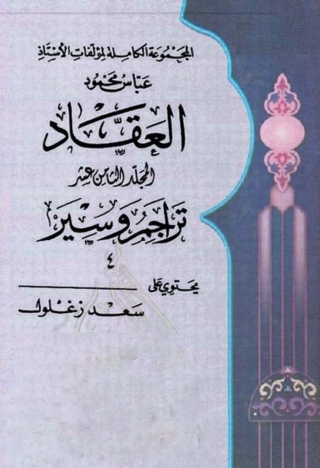 المجموعة الكاملة لمؤلفات الأستاذ
عباس محمود
العقاد
المجلد الثامن عشر
تراجم وسير
٤
يحتوي على
سعد زغلول